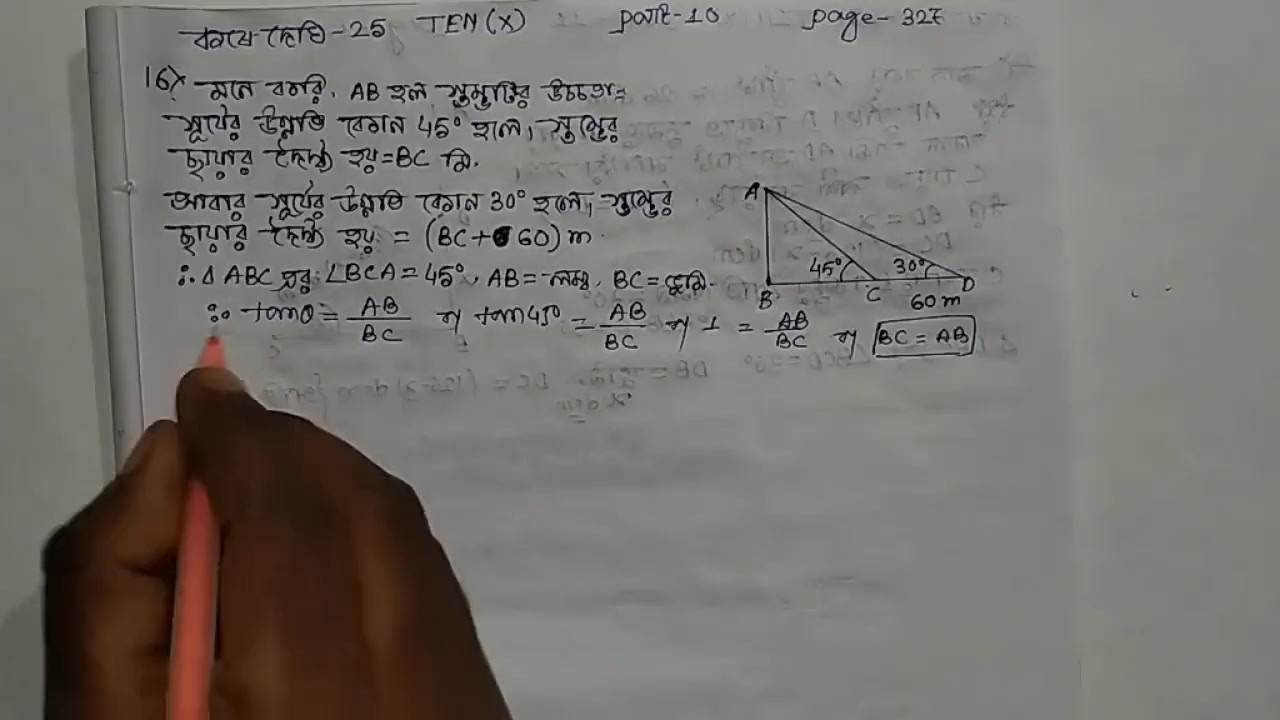 কষে দেখি - 25 TEN (X) part-10 page - 327
16) মনে করি, AB হল স্তম্ভটির উচ্চতা =
সূর্যের উন্নতি কোন 45° হলে, স্তম্ভের
ছায়ার দৈর্ঘ্য হয় = BC মি.
আবার সূর্যের উন্নতি কোন 30° হলে, স্তম্ভের
ছায়ার দৈর্ঘ্য হয় = (BC + 60) m.
∴ Δ ABC এর ∠BCA = 45°, AB = লম্ব, BC = ভূমি.
∴ tanθ = AB/BC বা tan45° = AB/BC বা 1 = AB/BC বা BC = AB
A
45° 30°
B C D
60 m